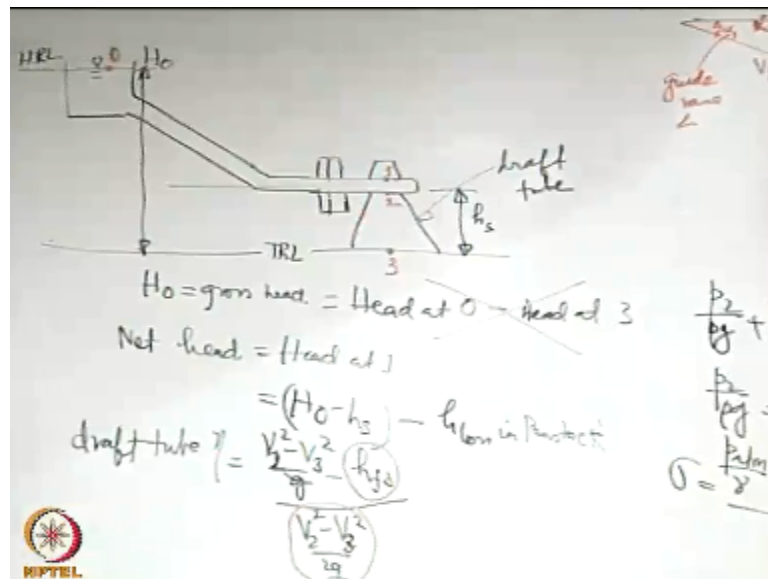 HRL 0 H₀
guide vane
V
draft tube
1
2
hₛ
TRL
3
H₀ = gross head = Head at 0 - Head at 3
Net head = Head at 1
= (H₀ - hₛ) - h loss in
draft tube η = V₂² - V₃² / 2g - hf₂
V₂² - V₃² / 2g
p₂ / ρg +
p₂ / ρg =
σ = patm / γ
NPTEL